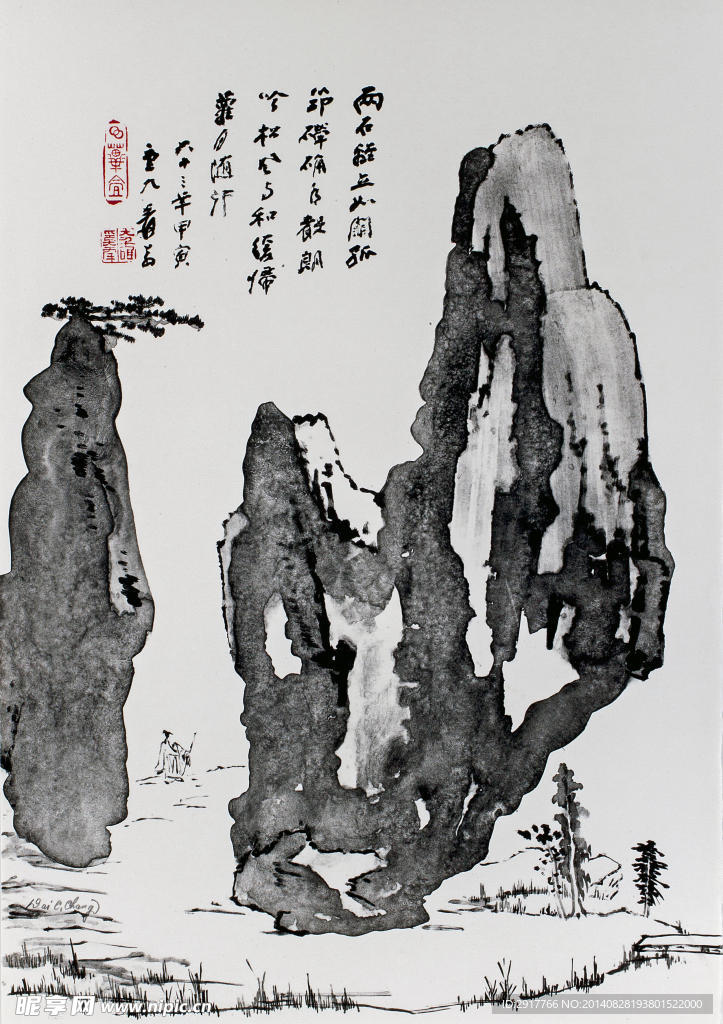 两石縱立如關孤
筇礫确自散朗
吟松風与和緩歸
蘿月随行
六十三年甲寅
雲九爰翁
(Dai C. Chang)
昵享网 www.nipic.cn
ID:2917766 NO:20140828193801522000